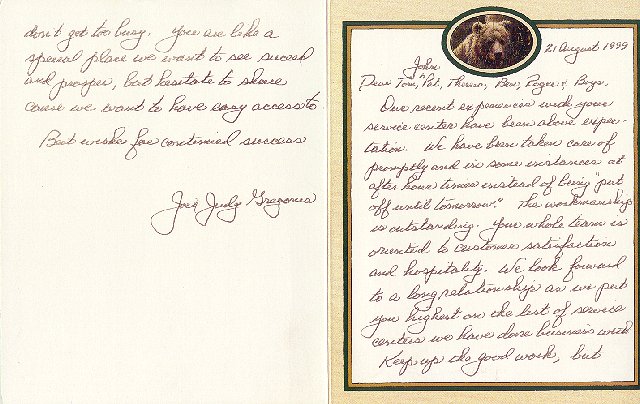 21 August 1999
John
Dear Tom, Pat, Theresa, Ben, Roger & Boys,
Our recent experiences with your
service center have been above expec-
tation. We have been taken care of
promptly and in some instances at
after hour times instead of being "put
off until tomorrow." The workmanship
is outstanding. Your whole team is
oriented to customer satisfaction
and hospitality. We look forward
to a long relationship as we put
you highest on the list of service
centers we have done business with
Keep up the good work, but
don't get too busy. You are like a
special place we want to see succeed
and prosper, but hesitate to share
cause we want to have easy access to.
Best wishes for continued success
Joe & Judy